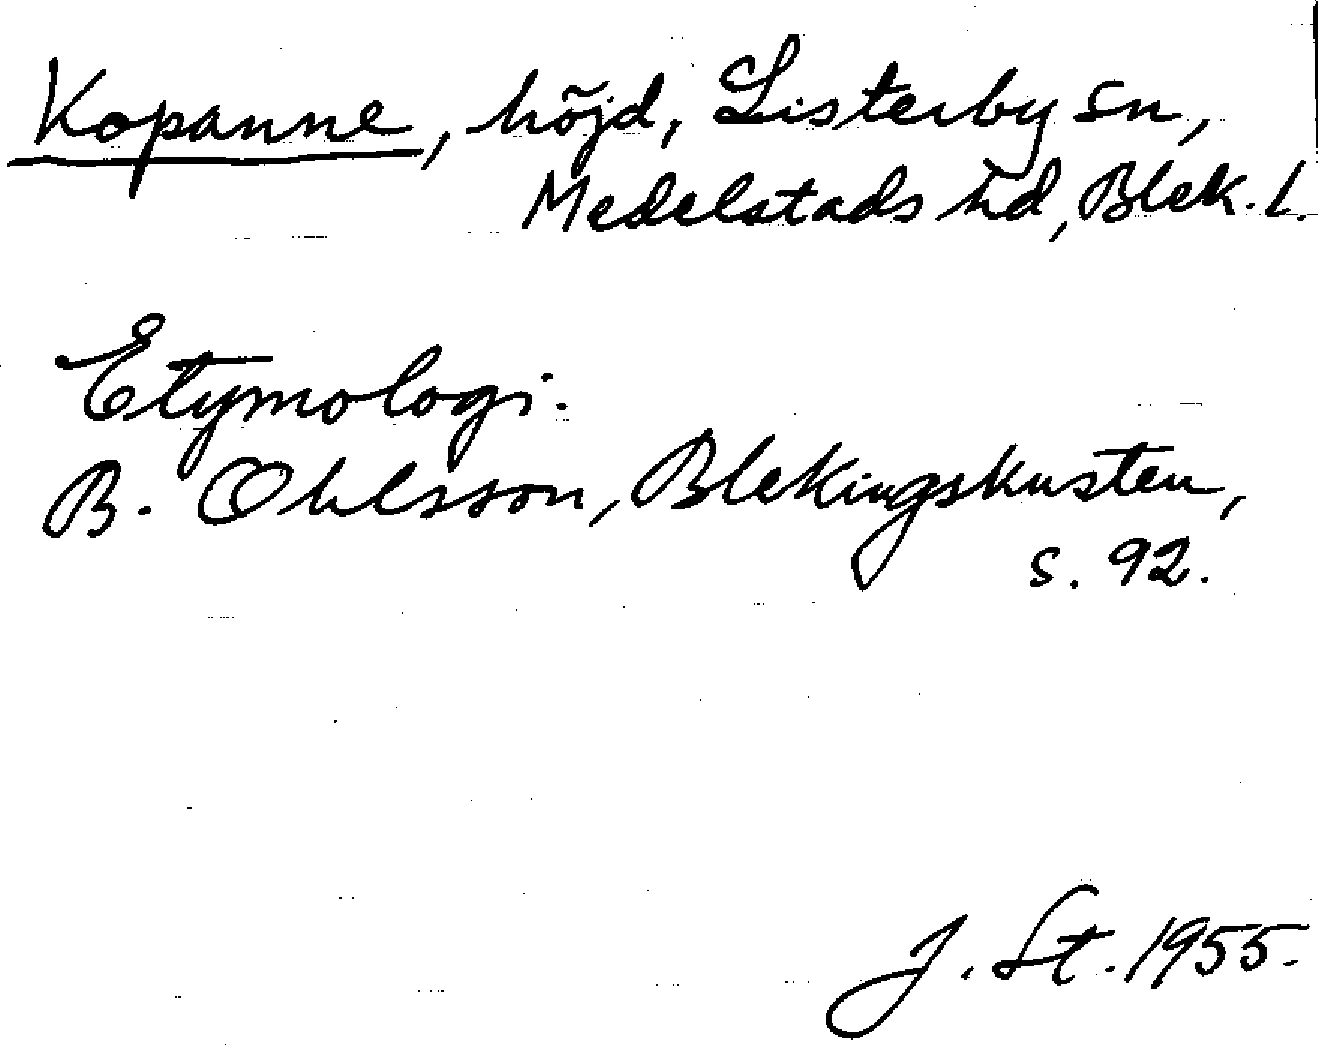 Kopanne, höjd, Listerby sn,
Medelstads hd, Blek. l.
Etymologi:
B. Ohlsson, Blekingskusten,
s. 92.
J. St. 1955.